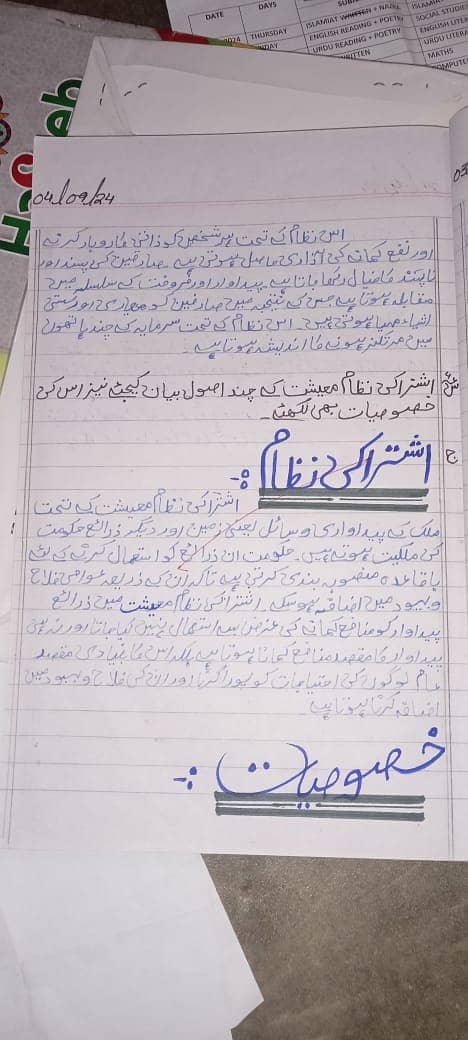 DATE DAYS
2024 THURSDAY ISLAMIAT WRITTEN + NAZRA
ENGLISH READING + POETRY
URDU READING + POETRY
WRITTEN
ISLAMIAT
SOCIAL STUDIES
ENGLISH LITERA
URDU LITERA
MATHS
COMPUTE
04/09/24
03
اس نظام کے تحت ہر شخص کو ذاتی کاروبار کرنے
اور نفع کمانے کی آزادی حاصل ہوتی ہے۔ صارفین کی پسند اور
ناپسند کا خیال رکھا جاتا ہے۔ پیداوار اور فروخت کے سلسلہ میں
مقابلہ ہوتا ہے جس کے نتیجہ میں صارفین کو معیاری اور سستی
اشیاء مہیا ہوتی ہیں۔ اس نظام کے تحت سرمایہ کے چند ہاتھوں
میں مرتکز ہونے کا اندیشہ ہوتا ہے۔
اشتراکی نظام معیشت کے چند اصول بیان کیجئے نیز اس کی
خصوصیات بھی لکھئے۔
ج اشتراکی نظام :-
اشتراکی نظام معیشت کے تحت
ملک کے پیداواری وسائل یعنی زمین اور دیگر ذرائع حکومت
کی ملکیت ہوتے ہیں۔ حکومت ان ذرائع کو استعمال کرنے کے لئے
باقاعدہ منصوبہ بندی کرتی ہے تاکہ ان کے ذریعہ عوامی فلاح
و بہبود میں اضافہ ہو سکے۔ اشتراکی نظام معیشت میں ذرائع
پیداوار کو منافع کمانے کی غرض سے استعمال نہیں کیا جاتا اور نہ ہی
پیداوار کا مقصد منافع کمانا ہوتا ہے بلکہ اس کا بنیادی مقصد
عام لوگوں کی احتیاجات کو پورا کرنا اور ان کی فلاح و بہبود میں
اضافہ کرنا ہوتا ہے۔
خصوصیات :-